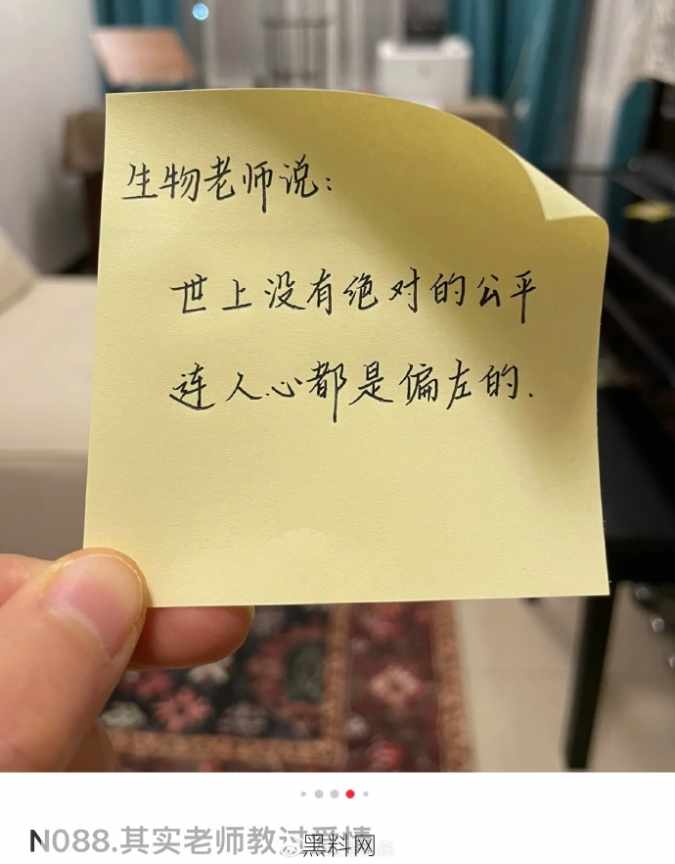 生物老师说:
世上没有绝对的公平
连人心都是偏左的.
N088.其实老师教过爱情
黑料网